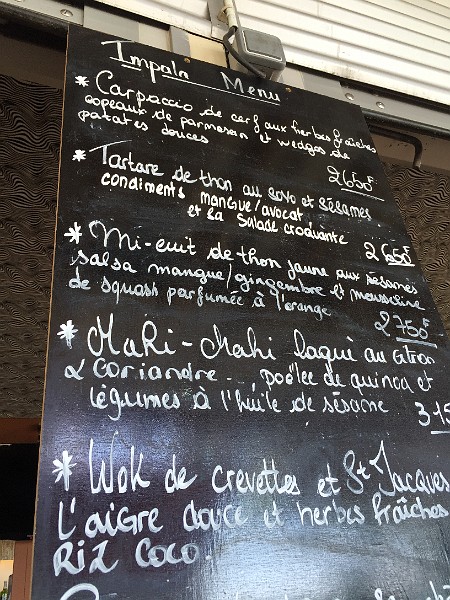 Impala Menu
* Carpaccio de cerf aux herbes fraîches
copeaux de parmesan et wedges de
patates douces
2650F
* Tartare de thon au soyo et sésames
condiments mangue/avocat
et sa salade croquante
2650F
* Mi-cuit de thon jaune aux sésames
salsa mangue/gingembre et mousseline
de squash parfumée à l'orange
2750F
* MaRi-Mahi laqué au citron
& coriandre... poêlée de quinoa et
légumes à l'huile de sésame
315
* Wok de crevettes et St Jacques
l'aigre douce et herbes fraîches
Riz coco.